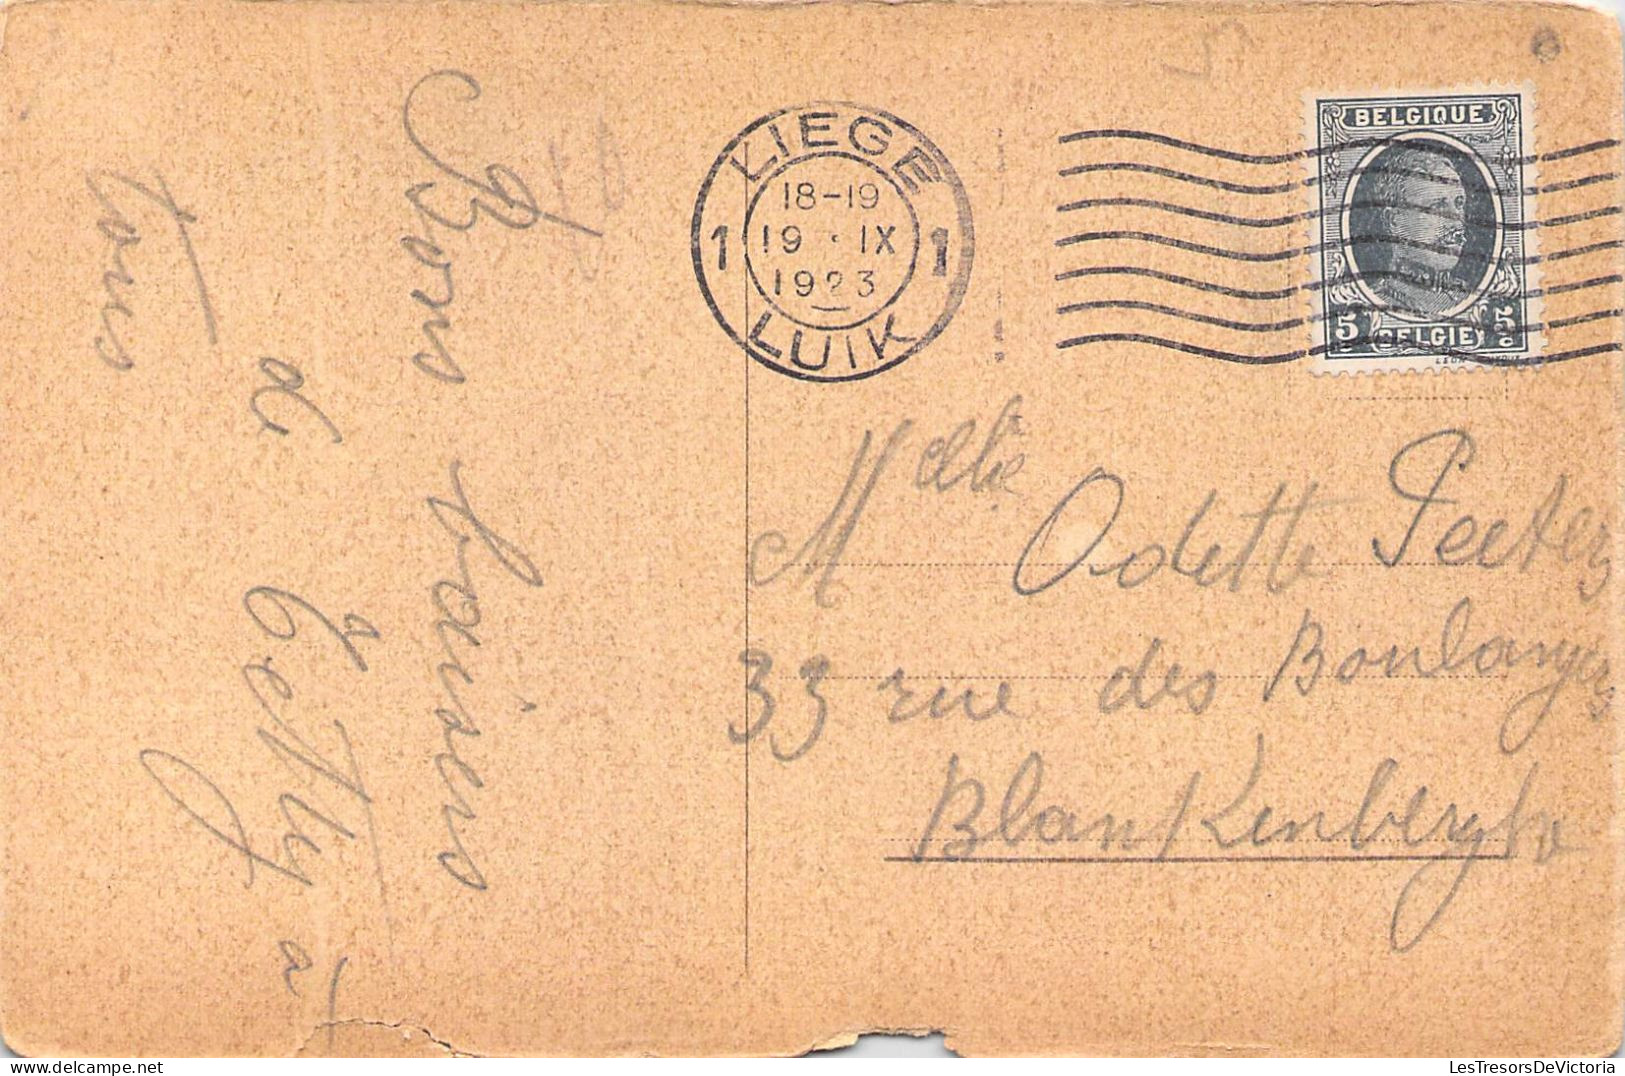 Bons baisers
de
à
tous
LIEGE
18-19
1 19 · IX 1
1923
LUIK
BELGIQUE
5
BELGIE
Melle Odette Peeters
33 rue des Boulangers
Blankenberghe
LesTresorsDeVictoria